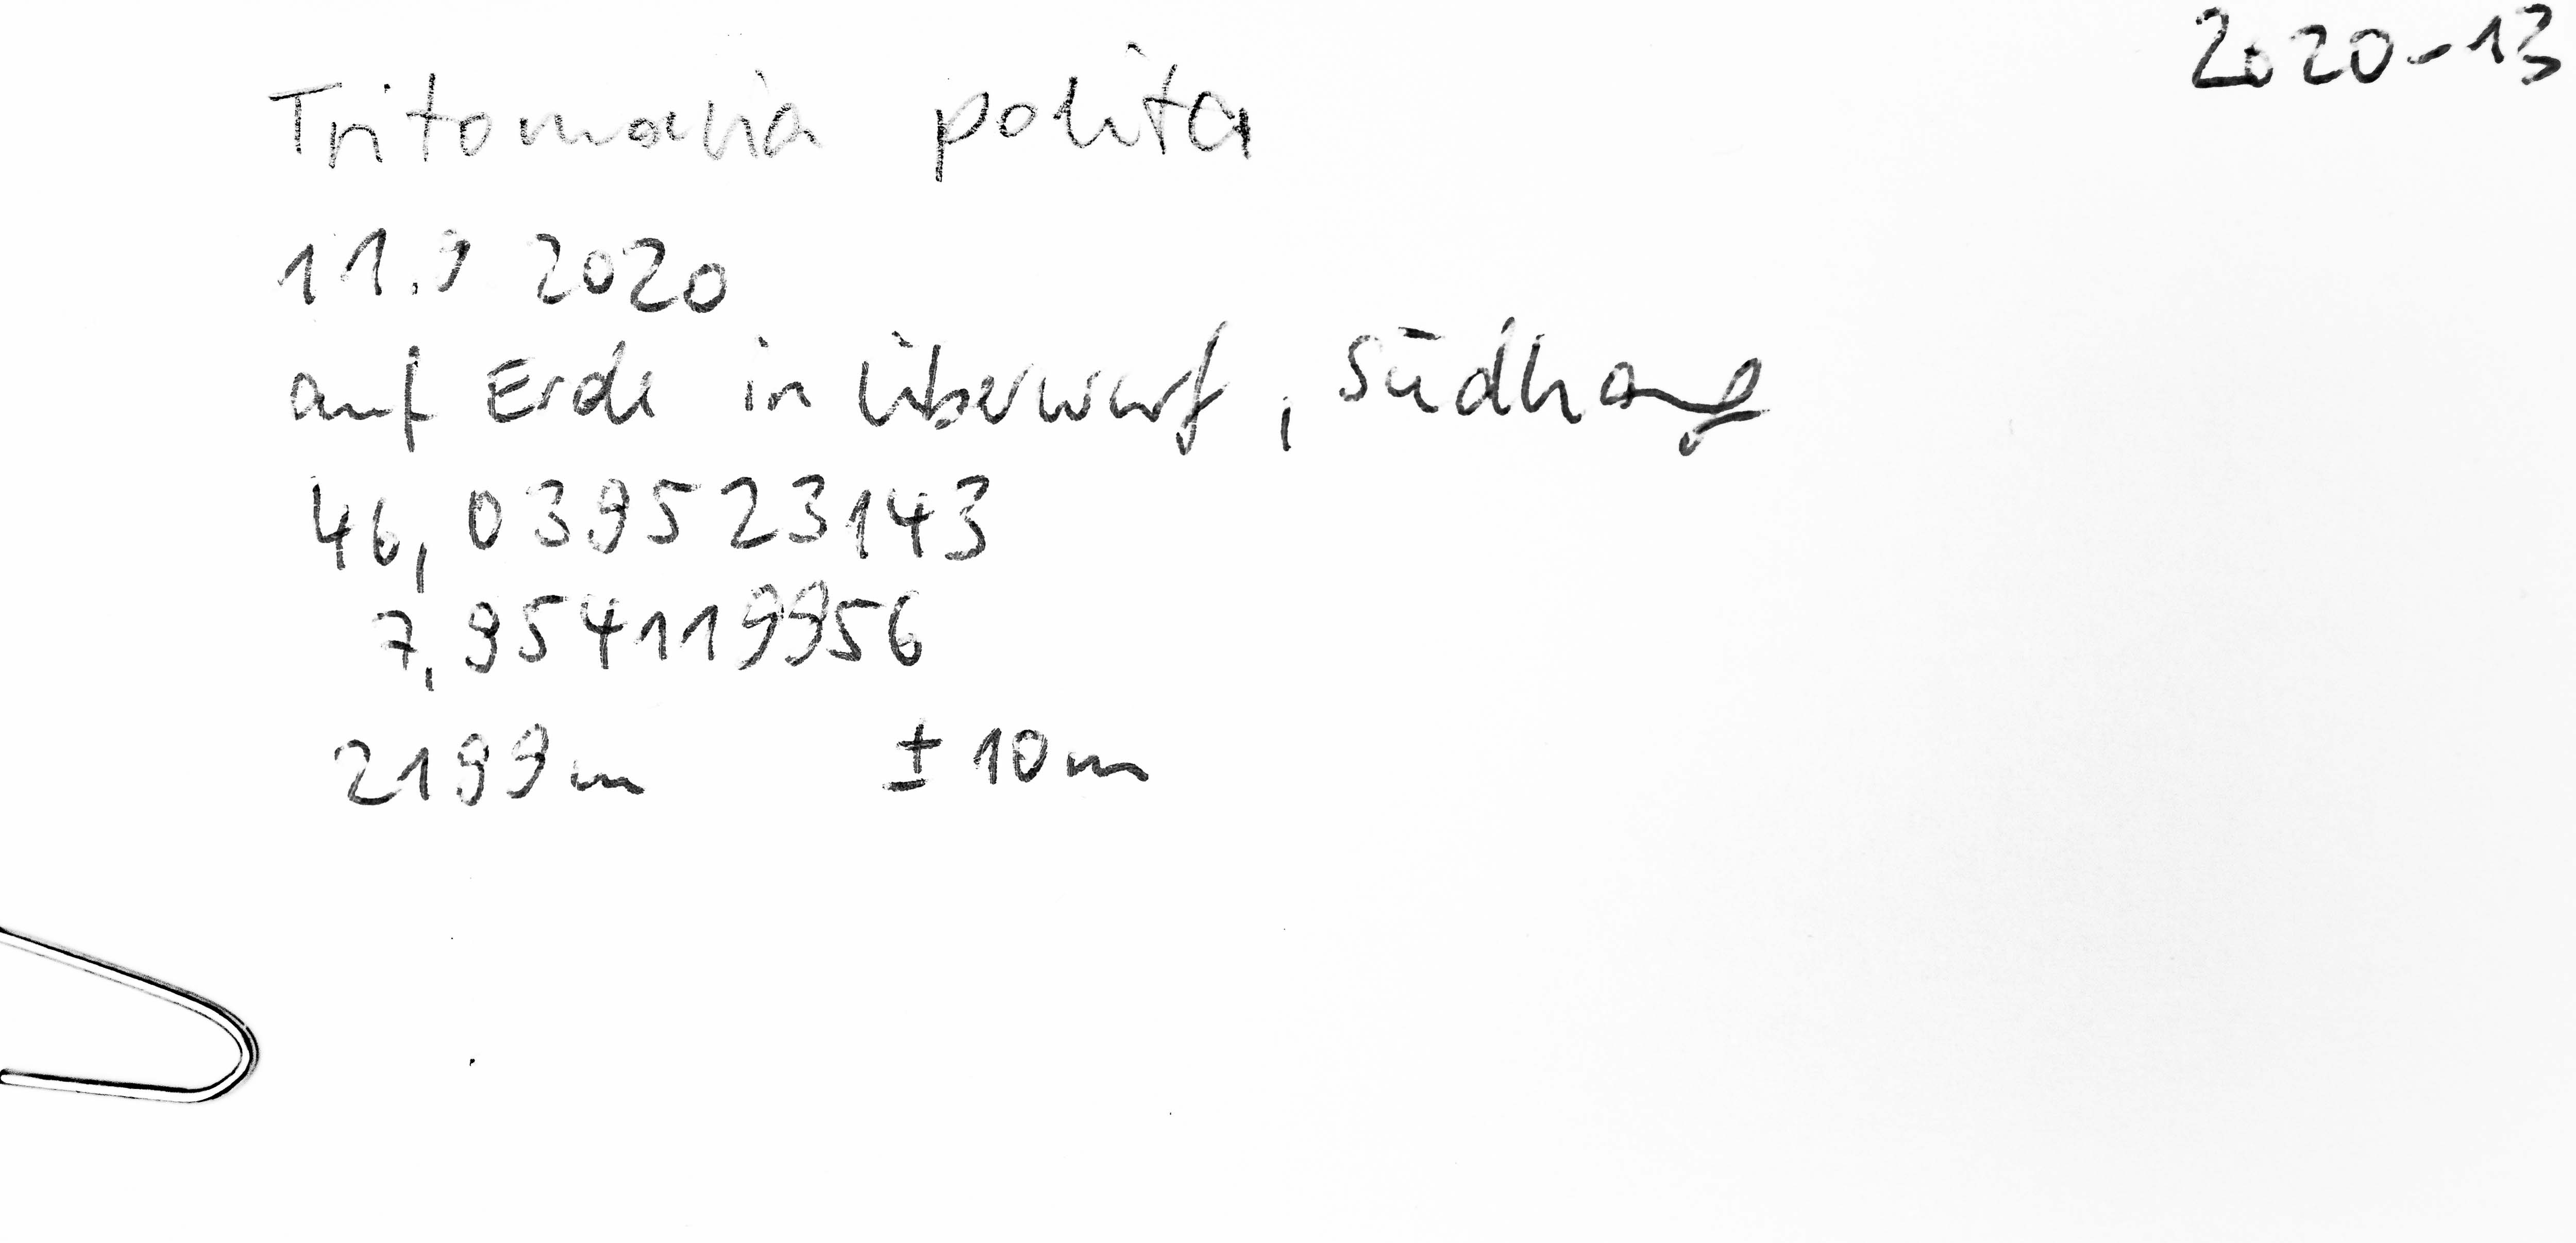 2020-13
Tritomaria polita
11.9 2020
auf Erde in Überwurf, Südhang
46,039523143
7,954119956
2199m ±10m